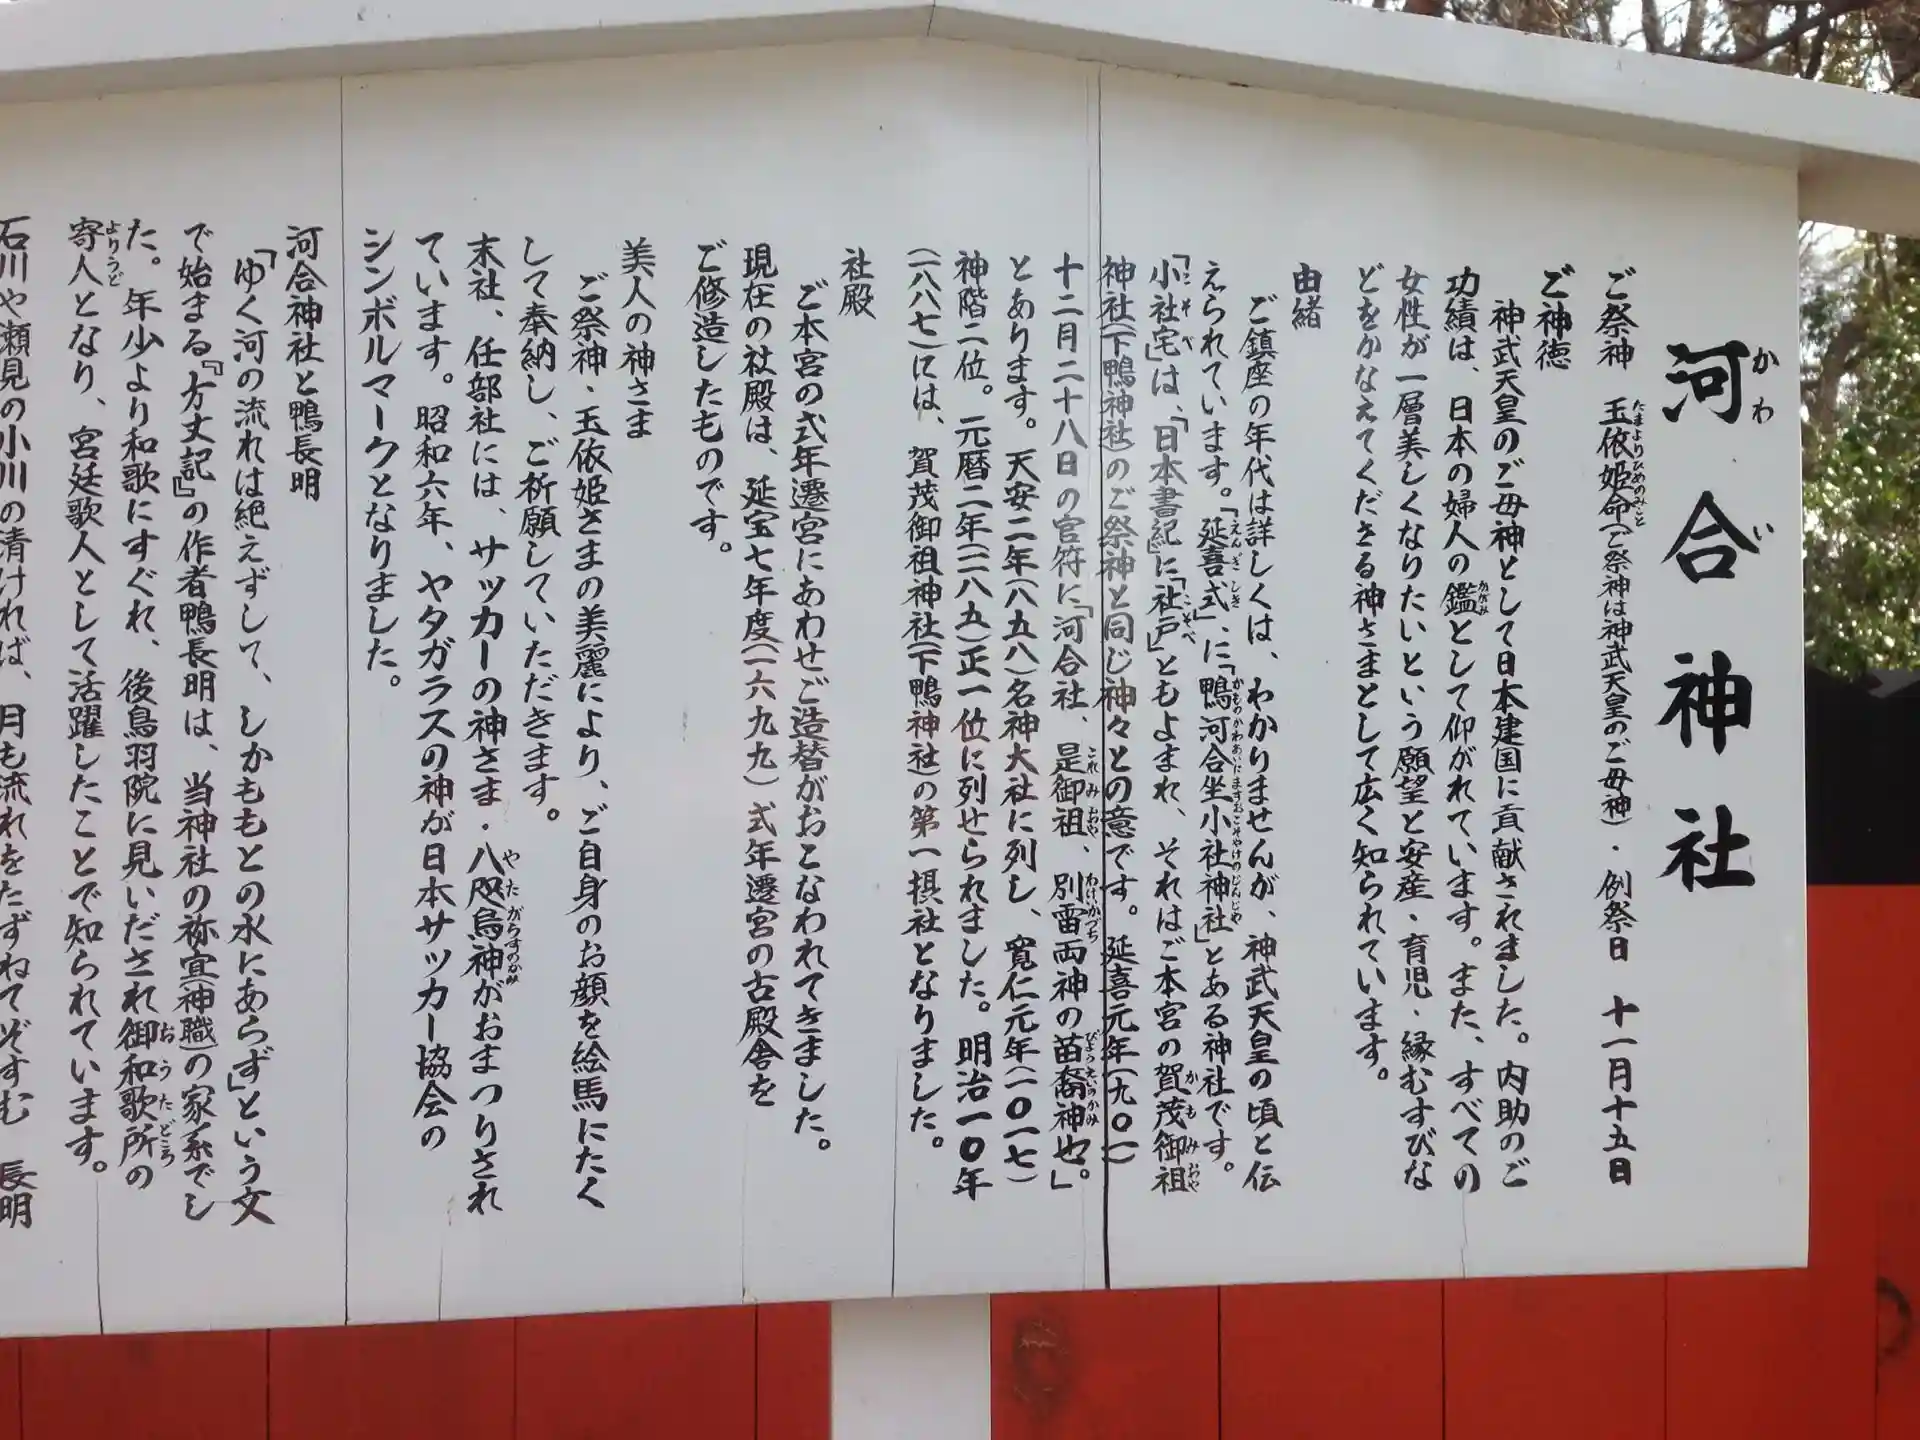 河合神社
ご祭神 玉依姫命(ご祭神は神武天皇のご母神)・例祭日 十一月十五日
ご神徳
神武天皇のご母神として日本建国に貢献されました。内助のご
功績は、日本の婦人の鑑として仰がれています。また、すべての
女性が一層美しくなりたいという願望と安産・育児・縁むすびな
どをかなえてくださる神さまとして広く知られています。
由緒
ご鎮座の年代は詳しくは、わかりませんが、神武天皇の頃と伝
えられています。「延喜式」に「鴨河合坐小社神社」とある神社です。
「小社宅」は、「日本書紀」に「社戸」ともよまれ、それはご本宮の賀茂御祖
神社(下鴨神社)のご祭神と同じ神々との意です。延喜元年(九〇一)
十二月二十八日の官符に「河合社、是御祖、別雷両神の苗裔神也。」
とあります。天安二年(八五八)名神大社に列し、寛仁元年(一〇一七)
神階二位。元暦二年(一一八五)正一位に列せられました。明治一〇年
(一八八七)には、賀茂御祖神社(下鴨神社)の第一摂社となりました。
社殿
ご本宮の式年遷宮にあわせご造替がおこなわれてきました。
現在の社殿は、延宝七年度(一六九九)式年遷宮の古殿舎を
ご修造したものです。
美人の神さま
ご祭神・玉依姫さまの美麗により、ご自身のお顔を絵馬にたく
して奉納し、ご祈願していただきます。
末社、任部社には、サッカーの神さま・八咫烏神がおまつりされ
ています。昭和六年、ヤタガラスの神が日本サッカー協会の
シンボルマークとなりました。
河合神社と鴨長明
「ゆく河の流れは絶えずして、しかももとの水にあらず」という文
で始まる『方丈記』の作者鴨長明は、当神社の祢宜(神職)の家系でし
た。年少より和歌にすぐれ、後鳥羽院に見いだされ御和歌所の
寄人となり、宮廷歌人として活躍したことで知られています。
石川や瀬見の小川の清ければ、月も流れをたずねてぞすむ 長明